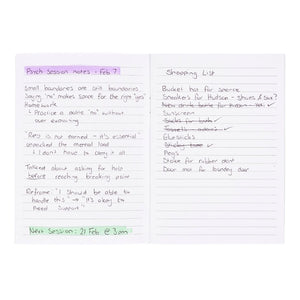 Psych Session notes - Feb 7
Small boundaries are still boundaries
Saying "no" makes space for the right "yes"
Homework
- Practice a calm "no" without
over explaining
"Rest is not earned - it's essential"
unpacked the mental load
- I don't have to carry it all
Talked about asking for help
before reaching breaking point
Reframe "I should be able to
handle this" → "It's okay to
need support"
Next Session: 21 Feb @ 3pm
Shopping List
Bucket hat for
Sneakers for Hudson - Shoes & Sox?
New drink bottle for
Sunscreen
Socks for both ✓
Towels ✓
Gluesticks
Sticky tape ✓
Pegs
Stake for rubber plant
Door mat for laundry door